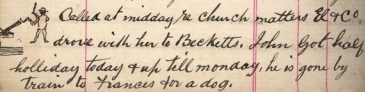 Called at midday re church matters &c &c
drove with her to Becketts. John Got half
holliday today & up till monday, he is gone by
train to Frances for a dog.